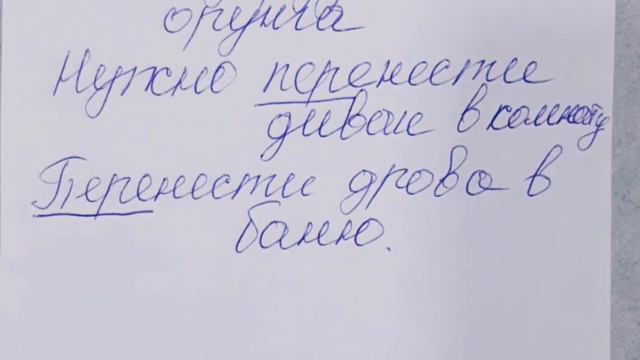 орунга
Нужно перенести
диван в комнату
Перенести дрова в
баню.